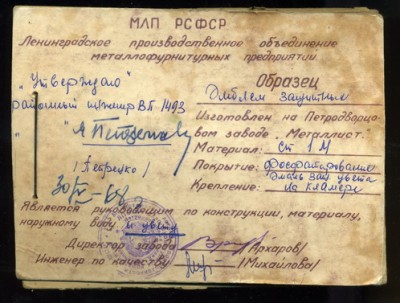 МЛП РСФСР
Ленинградское производственное объединение
металлофурнитурных предприятий.
"Утверждаю"
районный инженер ВП 1493
Образец
Эмблем защитных
Изготовлен на Петродворцо-
вом заводе "Металлист."
Материал: Ст 1 М
Покрытие: фосфатирование
эмаль защ цвета
Крепление: на клямере
/Петренко/
Является руководящим по конструкции, материалу,
наружному виду и цвету
Директор завода /Архаров/
Инженер по качеству /Михайлова/